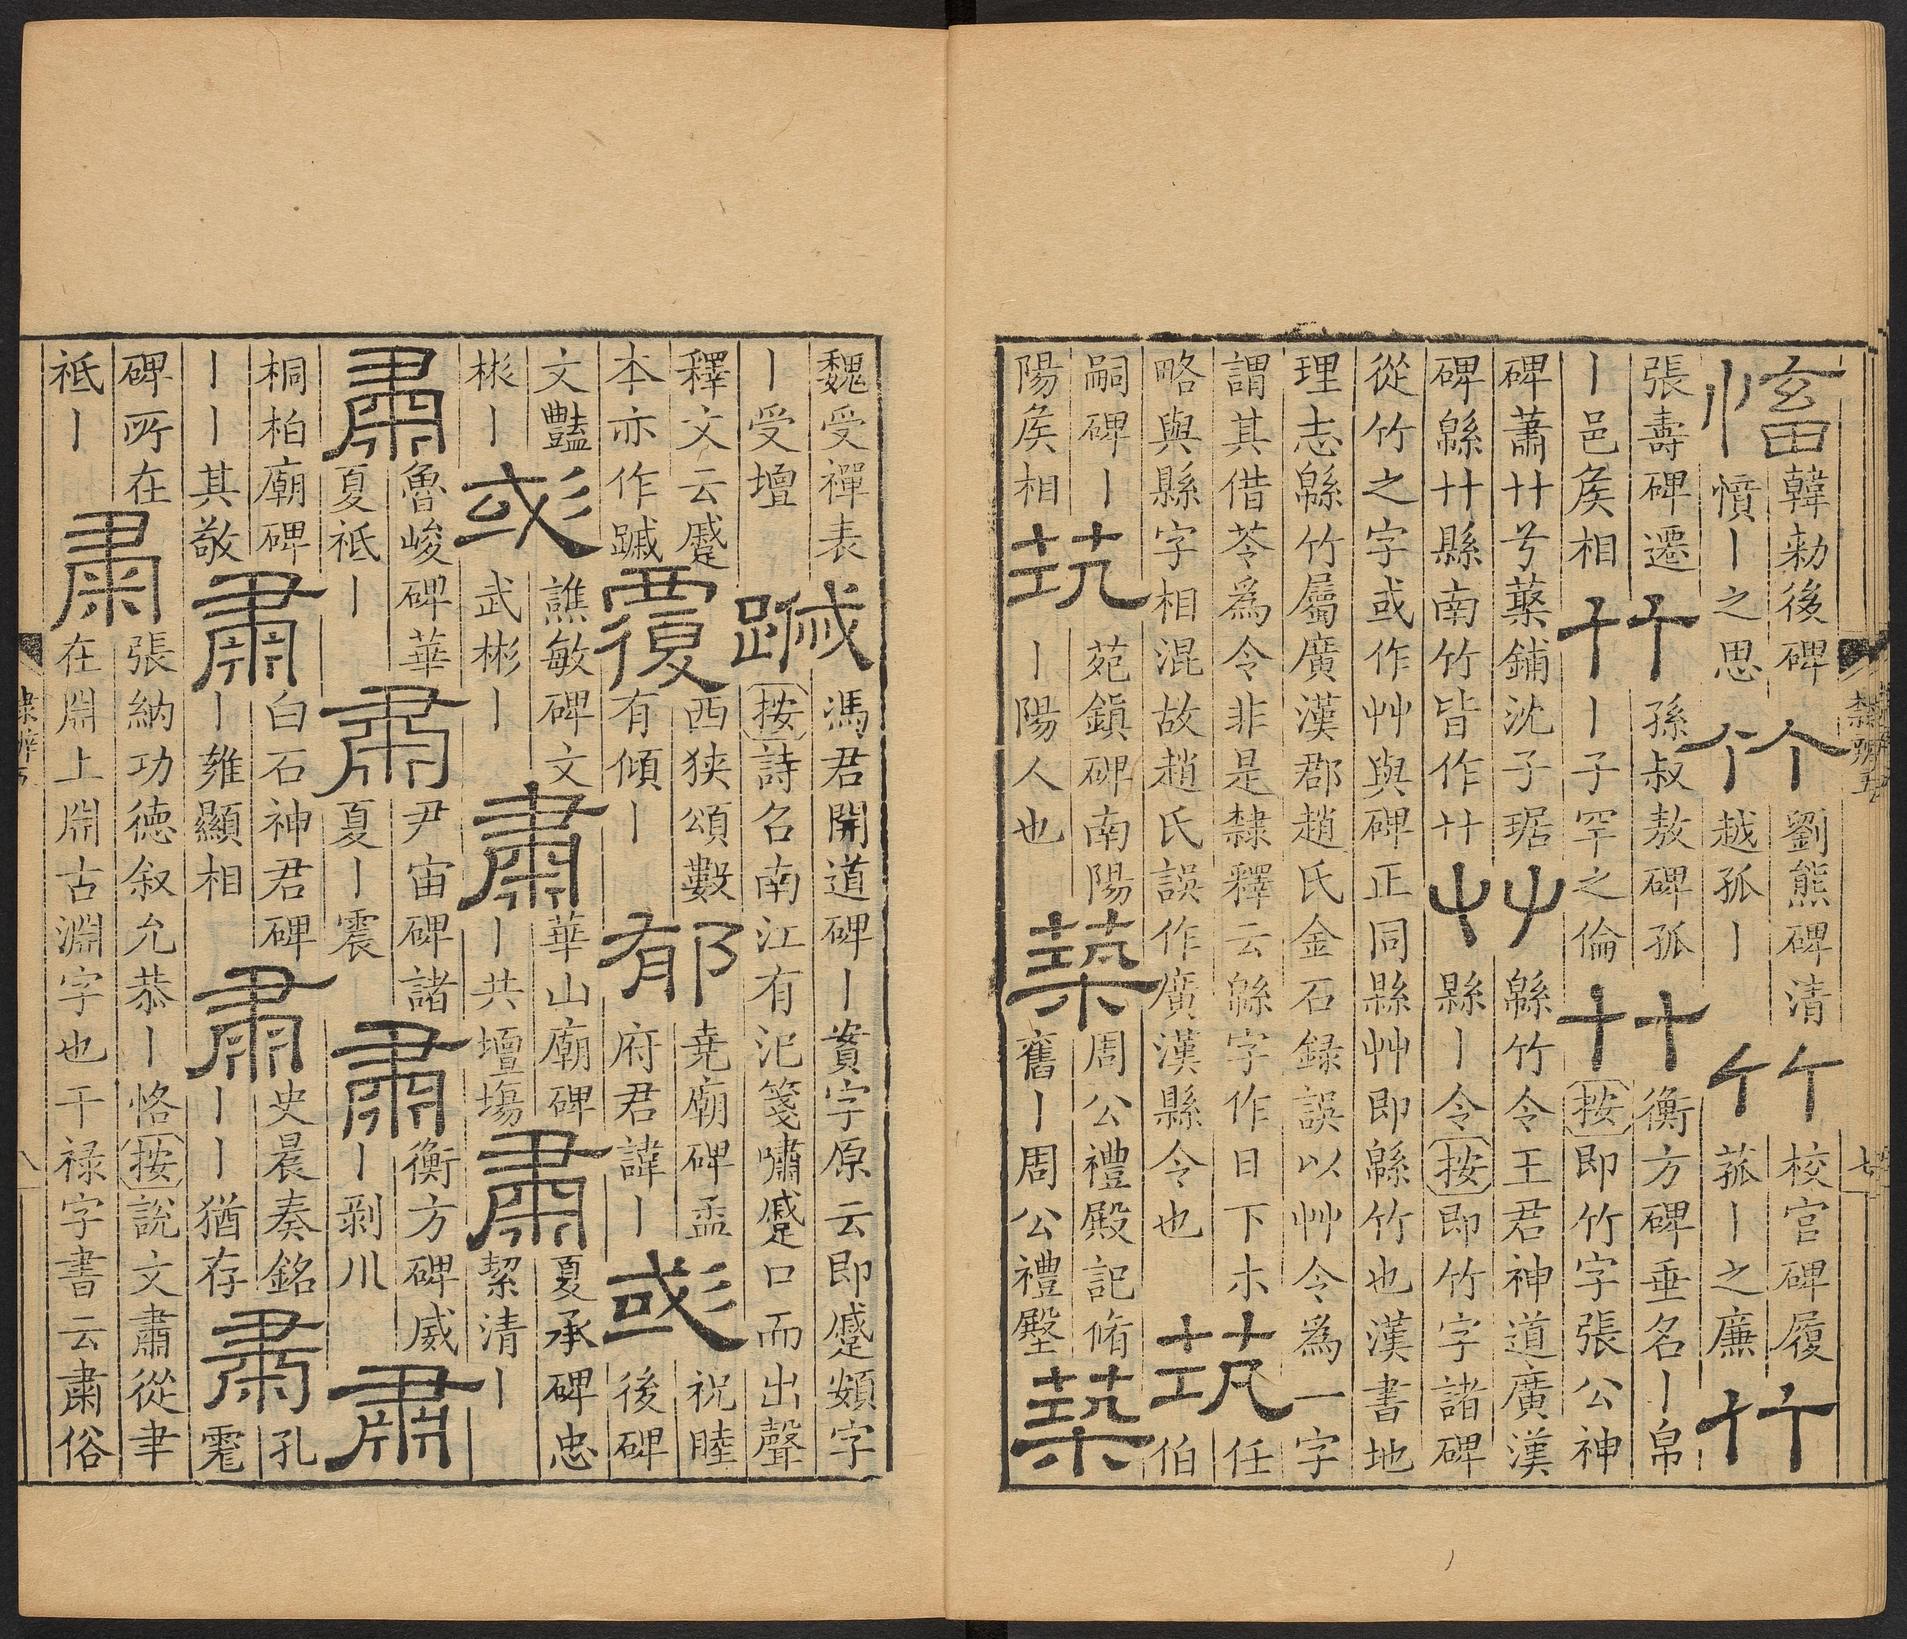 慉
韓勑後碑
憤丨之思
竹
劉熊碑清
越孤丨
竹
校官碑履
菰丨之廉
竹
張壽碑遷
丨邑矦相
竹
孫叔敖碑孤
丨子罕之倫
竹
衡方碑垂名丨帛
按即竹字張公神
碑蕭艹兮蓌鋪沈子琚
碑緜艹縣南竹皆作艹
艸
緜竹令王君神道廣漢
縣丨令按即竹字諸碑
從竹之字或作艸與碑正同縣艸即緜竹也漢書地
理志緜竹屬廣漢郡趙氏金石録誤以艸令為一字
謂其借苓爲令非是隸釋云緜字作日下木
略與縣字相混故趙氏誤作廣漢縣令也
筑
任
伯
嗣碑丨
陽矦相
筑
苑鎮碑南陽
丨陽人也
築
周公禮殿記脩
舊丨周公禮殿
築
魏受禪表
丨受壇
蹴
馮君開道碑丨㝨字原云即蹙頞字
按詩名南江有汜箋嘯蹙口而出聲
釋文云蹙
本亦作䠞
覆
西狹頌數
有傾丨
郁
堯廟碑孟
府君諱丨
彧
祝睦
後碑
文豔
彬丨
彧
譙敏碑文
武彬丨
肅
華山廟碑
丨共壇塲
肅
夏承碑忠
絜清丨
肅
魯峻碑華
夏祗丨
肅
尹宙碑諸
夏丨震
肅
衡方碑威
丨剥川
肅
桐柏廟碑
丨丨其敬
肅
白石神君碑
丨雍顯相
肅
史晨奏銘
丨丨猶存
肅
孔
碑所在
祗丨
肅
張納功德叙允恭丨恪按說文肅從聿
在𣶒上𣶒古淵字也干禄字書云粛俗